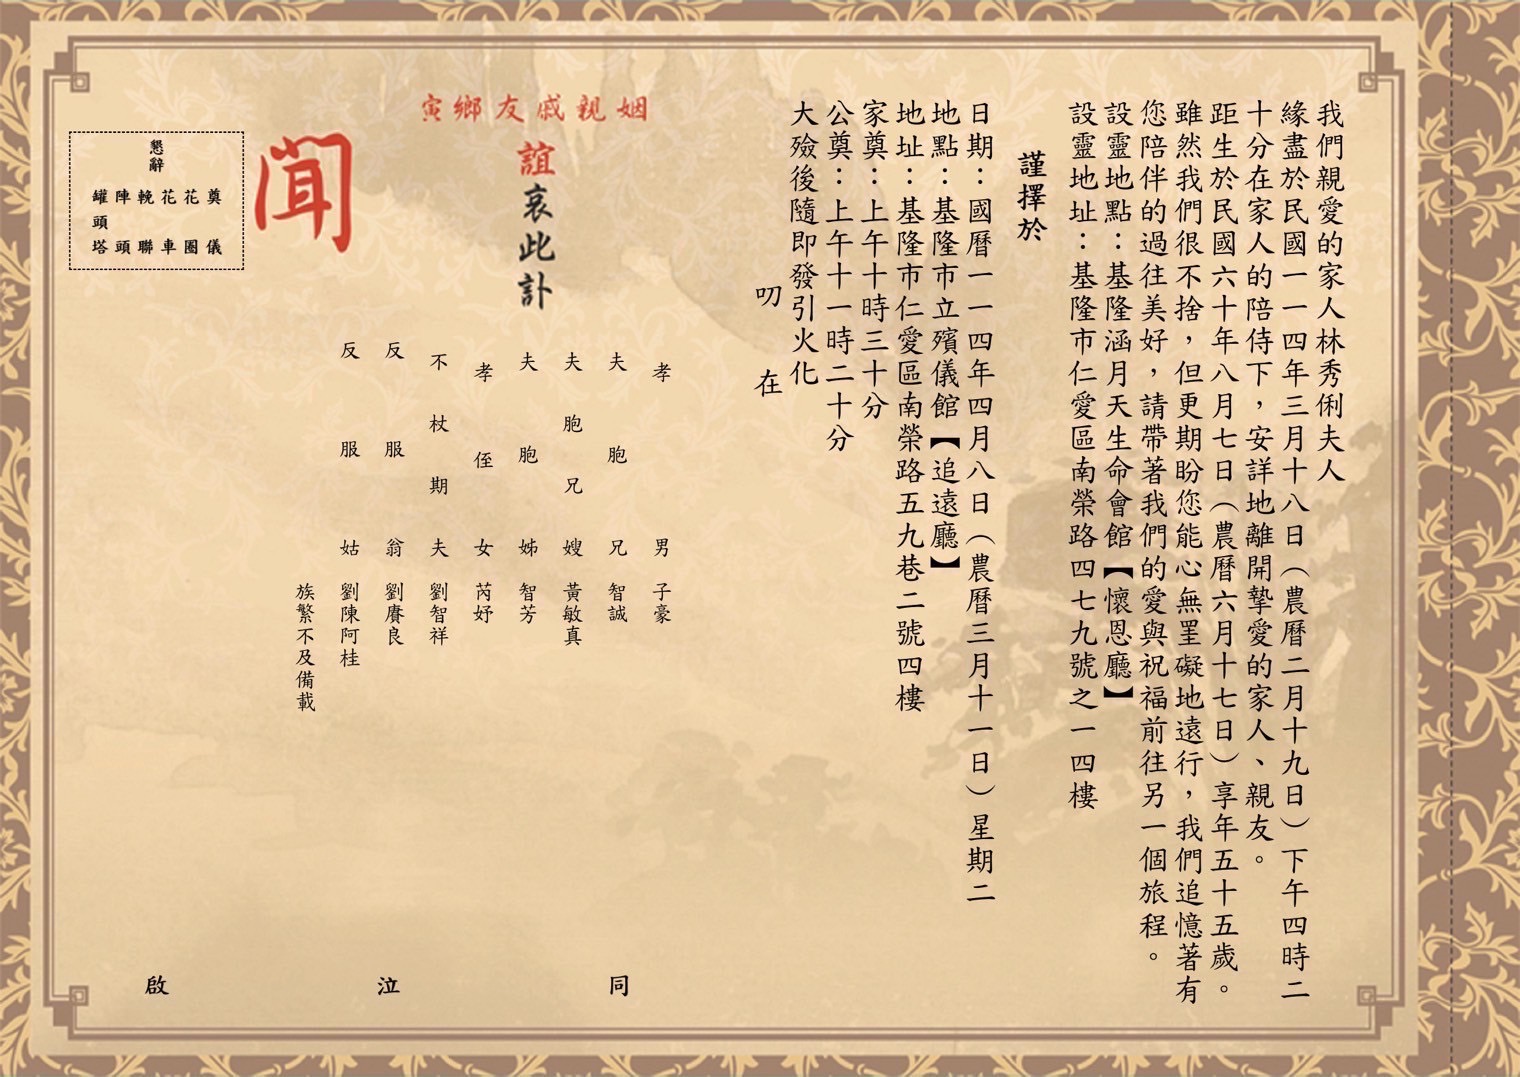 我們親愛的家人林秀俐夫人
緣盡於民國一一四年三月十八日（農曆二月十九日）下午四時二
十分在家人的陪侍下，安詳地離開摯愛的家人、親友。
距生於民國六十年八月七日（農曆六月十七日）享年五十五歲。
雖然我們很不捨，但更期盼您能心無罣礙地遠行，我們追憶著有
您陪伴的過往美好，請帶著我們的愛與祝福前往另一個旅程。
設靈地點：基隆涵月天生命會館【懷恩廳】
設靈地址：基隆市仁愛區南榮路四七九號之一四樓
謹擇於
日期：國曆一一四年四月八日（農曆三月十一日）星期二
地點：基隆市立殯儀館【追遠廳】
地址：基隆市仁愛區南榮路五九巷二號四樓
家奠：上午十時三十分
公奠：上午十一時二十分
大殮後隨即發引火化
叨在
姻親戚友鄉寅
誼哀此訃
聞
孝男 子豪
夫胞兄 智誠
夫胞兄嫂 黃敏真
夫胞姊 智芳
孝侄女 芮妤
不杖期夫 劉智祥
反服翁 劉賡良
反服姑 劉陳阿桂
族繁不及備載
同泣啟
懇辭
奠儀
花圈
花車
輓聯
陣頭
罐頭塔